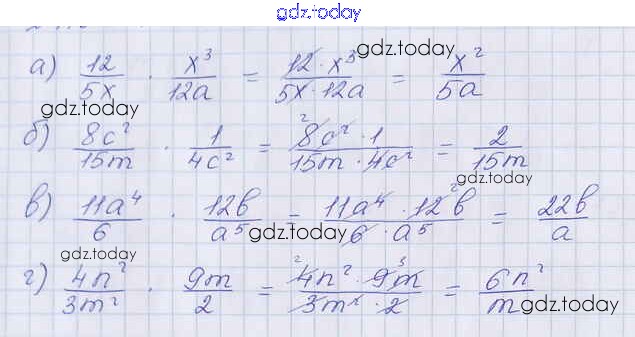 gdz.today
а) 12/5x · x³/12a = 12 · x³/5x · 12a = x²/5a
gdz.today
gdz.today
б) 8c²/15m · 1/4c² = 8c² · 1/15m · 4c² = 2/15m
gdz.today
в) 11a⁴/6 · 12b/a⁵ = 11a⁴ · 12b/6 · a⁵ = 22b/a
gdz.today
gdz.today
г) 4n²/3m² · 9m/2 = 4n² · 9m/3m² · 2 = 6n²/m
gdz.today